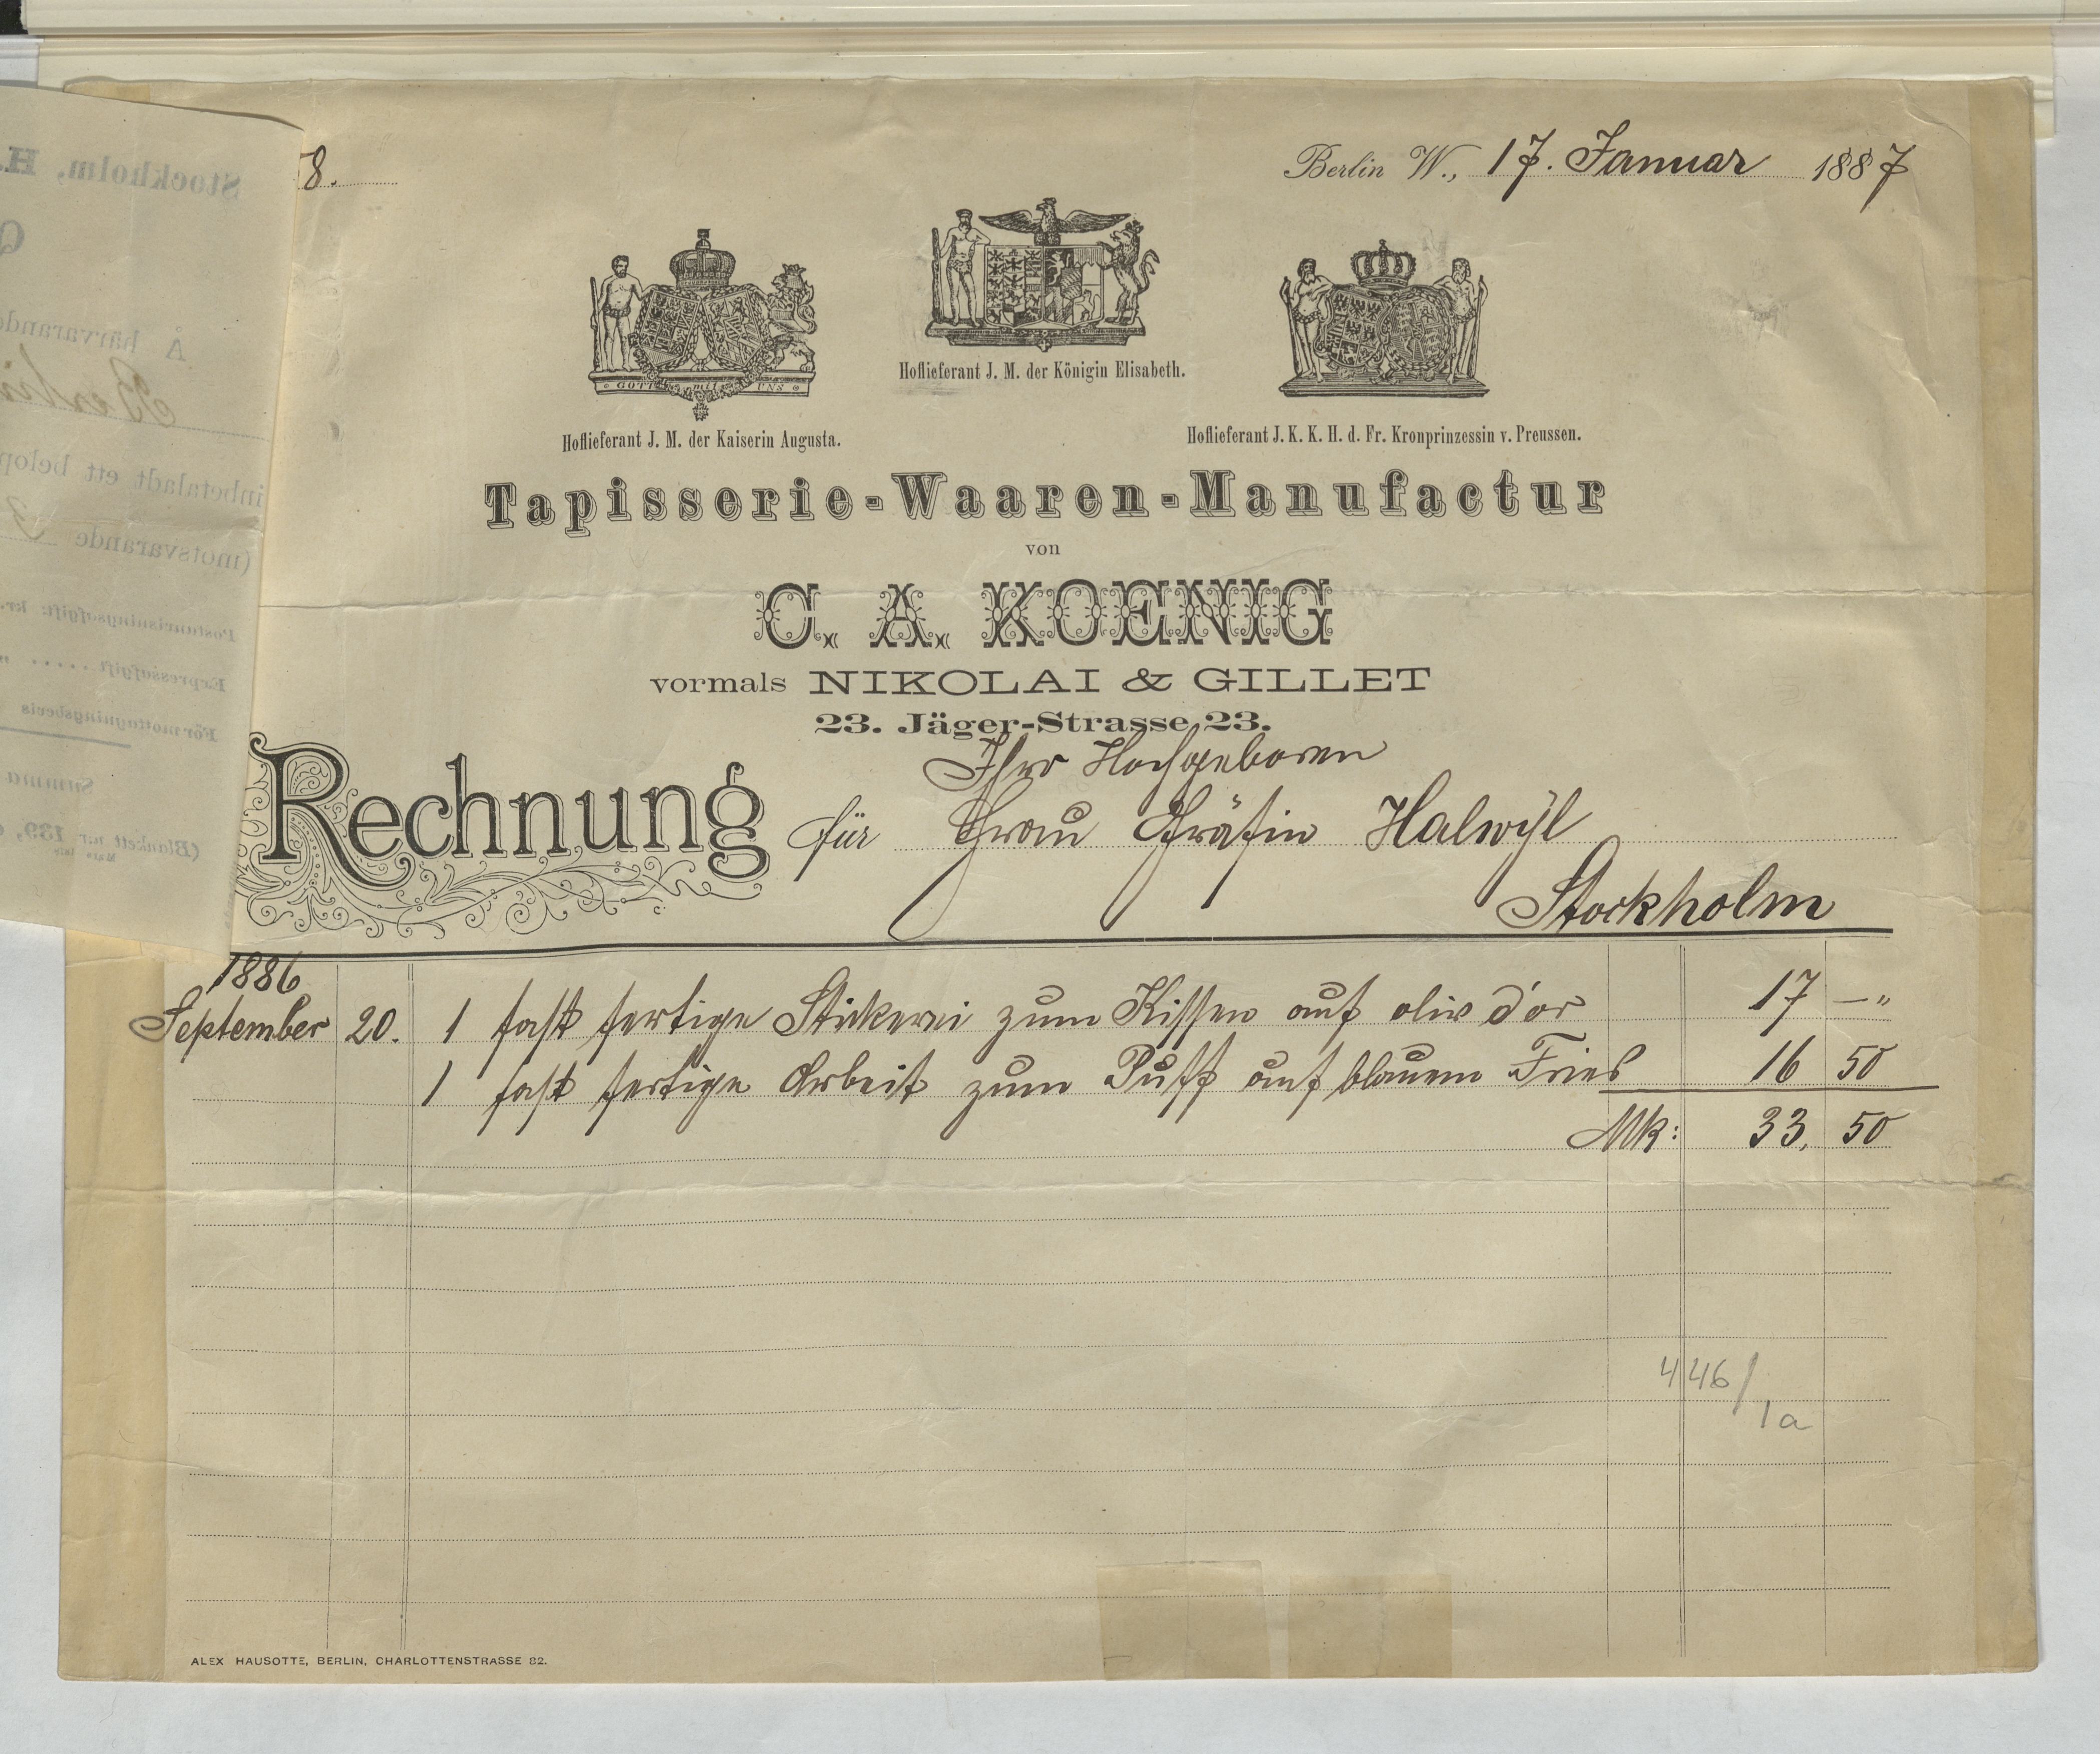 8.
Berlin W., 17. Januar 1887
GOTT mit UNS
Hoflieferant J. M. der Kaiserin Augusta.
Hoflieferant J. M. der Königin Elisabeth.
Hoflieferant J. K. K. H. d. Fr. Kronprinzessin v. Preussen.
Tapisserie-Waaren-Manufactur
von
C. A. KOENIG
vormals NIKOLAI & GILLET
23. Jäger-Strasse 23.
Ihro Hochgeboren
Rechnung für Frau Gräfin Halwÿl
Stockholm
1886
September 20. 1 fast fertige Stickerei zum Kissen auf oliv d'or 17 —"
1 fast fertige Arbeit zum Puff auf blauem Fries 16 50
Mk: 33, 50
446/
1a
ALEX HAUSOTTE, BERLIN, CHARLOTTENSTRASSE 82.
Stockholm, H.
Q
Å härvarande
Berlin
inbetaladt ett belop
(motsvarande 3
Postanvisningsafgift: kr.
Expressafgift . . . . . "
För mottagningsbevis
Summa
(Blankett n:r 139,